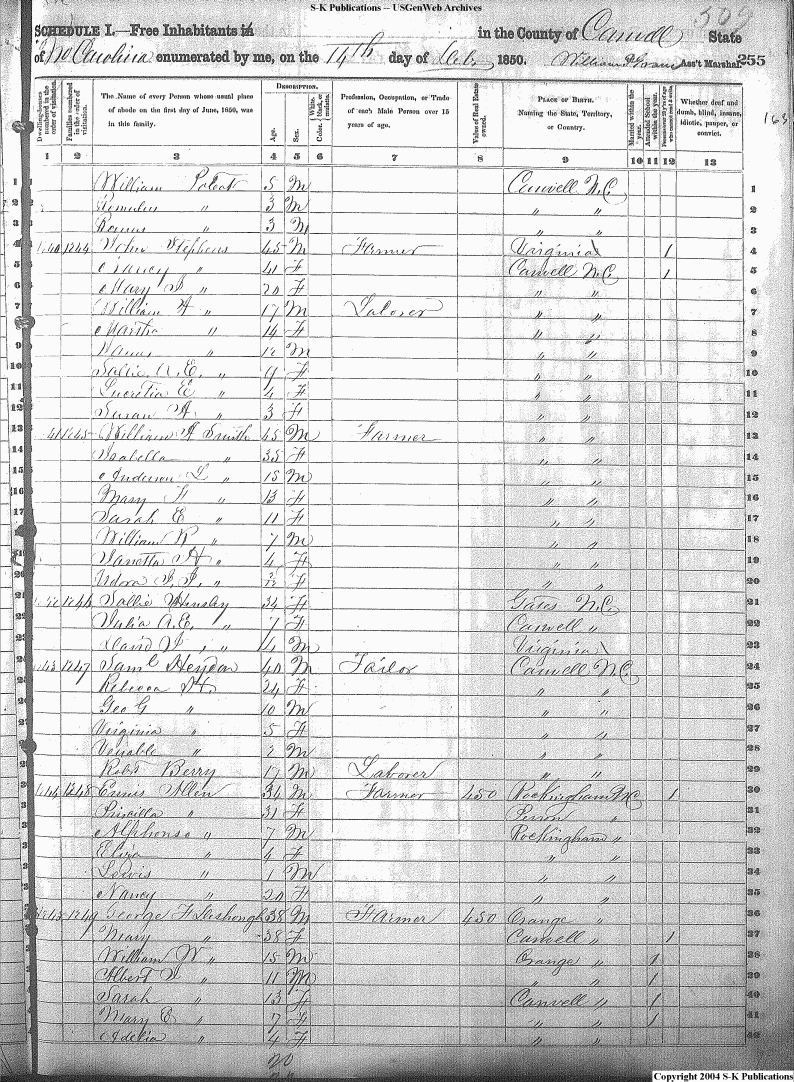 S-K Publications -- USGenWeb Archives
509
SCHEDULE I.—Free Inhabitants in in the County of Caswell State
of No Carolina enumerated by me, on the 14th day of 1850. Ass't Marshal. 255
163
Dwelling-houses numbered in the order of visitation.
Families numbered in the order of visitation.
The Name of every Person whose usual place of abode on the first day of June, 1850, was in this family.
DESCRIPTION.
Age.
Sex.
Color, White, black, or mulatto.
Profession, Occupation, or Trade of each Male Person over 15 years of age.
Value of Real Estate owned.
PLACE OF BIRTH. Naming the State, Territory, or Country.
Married within the year.
Attended School within the year.
Persons over 20 y'rs of age who cannot read & write.
Whether deaf and dumb, blind, insane, idiotic, pauper, or convict.
1 2 3 4 5 6 7 8 9 10 11 12 13
1 William 5 M Caswell N.C. 1
2 Romulus " 3 M " " 2
3 Remus " 3 M " " 3
4 1244 John Stephens 45 M Farmer Virginia 1 4
5 Nancy " 41 F Caswell N.C. 1 5
6 Mary " 20 F " " 6
7 William A " 17 M Laborer " " 7
8 Martha " 14 F " " 8
9 " 12 M " " 9
10 Sallie A.E. " 9 F " " 10
11 Lucretia E " 4 F " " 11
12 Susan A " 3 F " " 12
13 1245 William A Smith 45 M Farmer " " 13
14 Isabella " 35 F " " 14
15 Anderson L " 15 M " " 15
16 Mary F " 13 F " " 16
17 Sarah E " 11 F " " 17
18 William " 7 M " " 18
19 " 4 F " " 19
20 " F " " 20
21 1246 Sallie 34 F Gates N.C. 21
22 Julia A.E. " 7 F Caswell " 22
23 David " 4 M Virginia 23
24 43 1247 Saml 40 M Tailor Caswell N.C. 24
25 Rebecca " 24 F " " 25
26 Geo G " 10 M " " 26
27 Virginia " 5 F " " 27
28 Venable " 2 M " " 28
29 Robt Berry 17 M Laborer " " 29
30 44 1248 Ennis Allen 34 M Farmer 450 Rockingham N.C. 1 30
31 Priscilla " 31 F Person " 31
32 Alphonso " 7 M Rockingham " 32
33 Eliza " 4 F " " 33
34 Lewis " 1 M " " 34
35 Nancy " 20 F " " 35
36 1249 George F 38 M Farmer 450 Orange " 36
37 Mary " 38 F Caswell " 1 37
38 William W " 15 M Orange " 1 38
39 Albert " 11 M " " 1 39
40 Sarah " 13 F Caswell " 1 40
41 Mary E " 7 F " " 1 41
42 Adelia " 4 F " " 42
20
Copyright 2004 S-K Publications